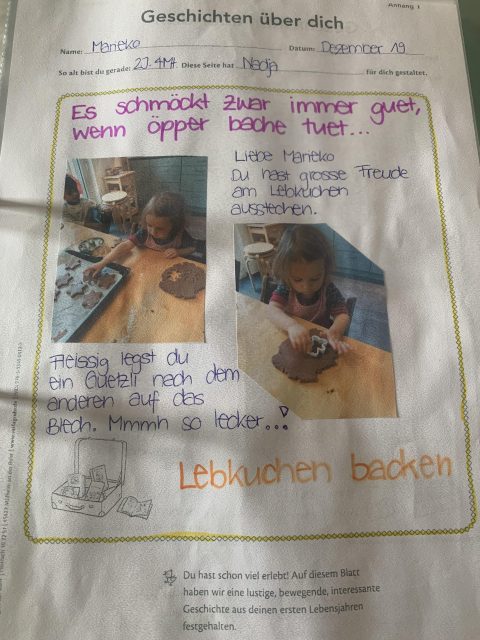 Anhang 1
Geschichten über dich
Name: Marieko Datum: Dezember 19
So alt bist du gerade: 2J. 4Mt. Diese Seite hat Nadja für dich gestaltet.
Es schmöckt zwar immer guet,
wenn öpper bache tuet...
Liebe Marieko
Du hast grosse Freude
am Lebkuchen
ausstechen.
Fleissig legst du
ein Guetzli nach dem
anderen auf das
Blech. Mmmh so lecker...!
Lebkuchen backen
Du hast schon viel erlebt! Auf diesem Blatt
haben wir eine lustige, bewegende, interessante
Geschichte aus deinen ersten Lebensjahren
festgehalten.